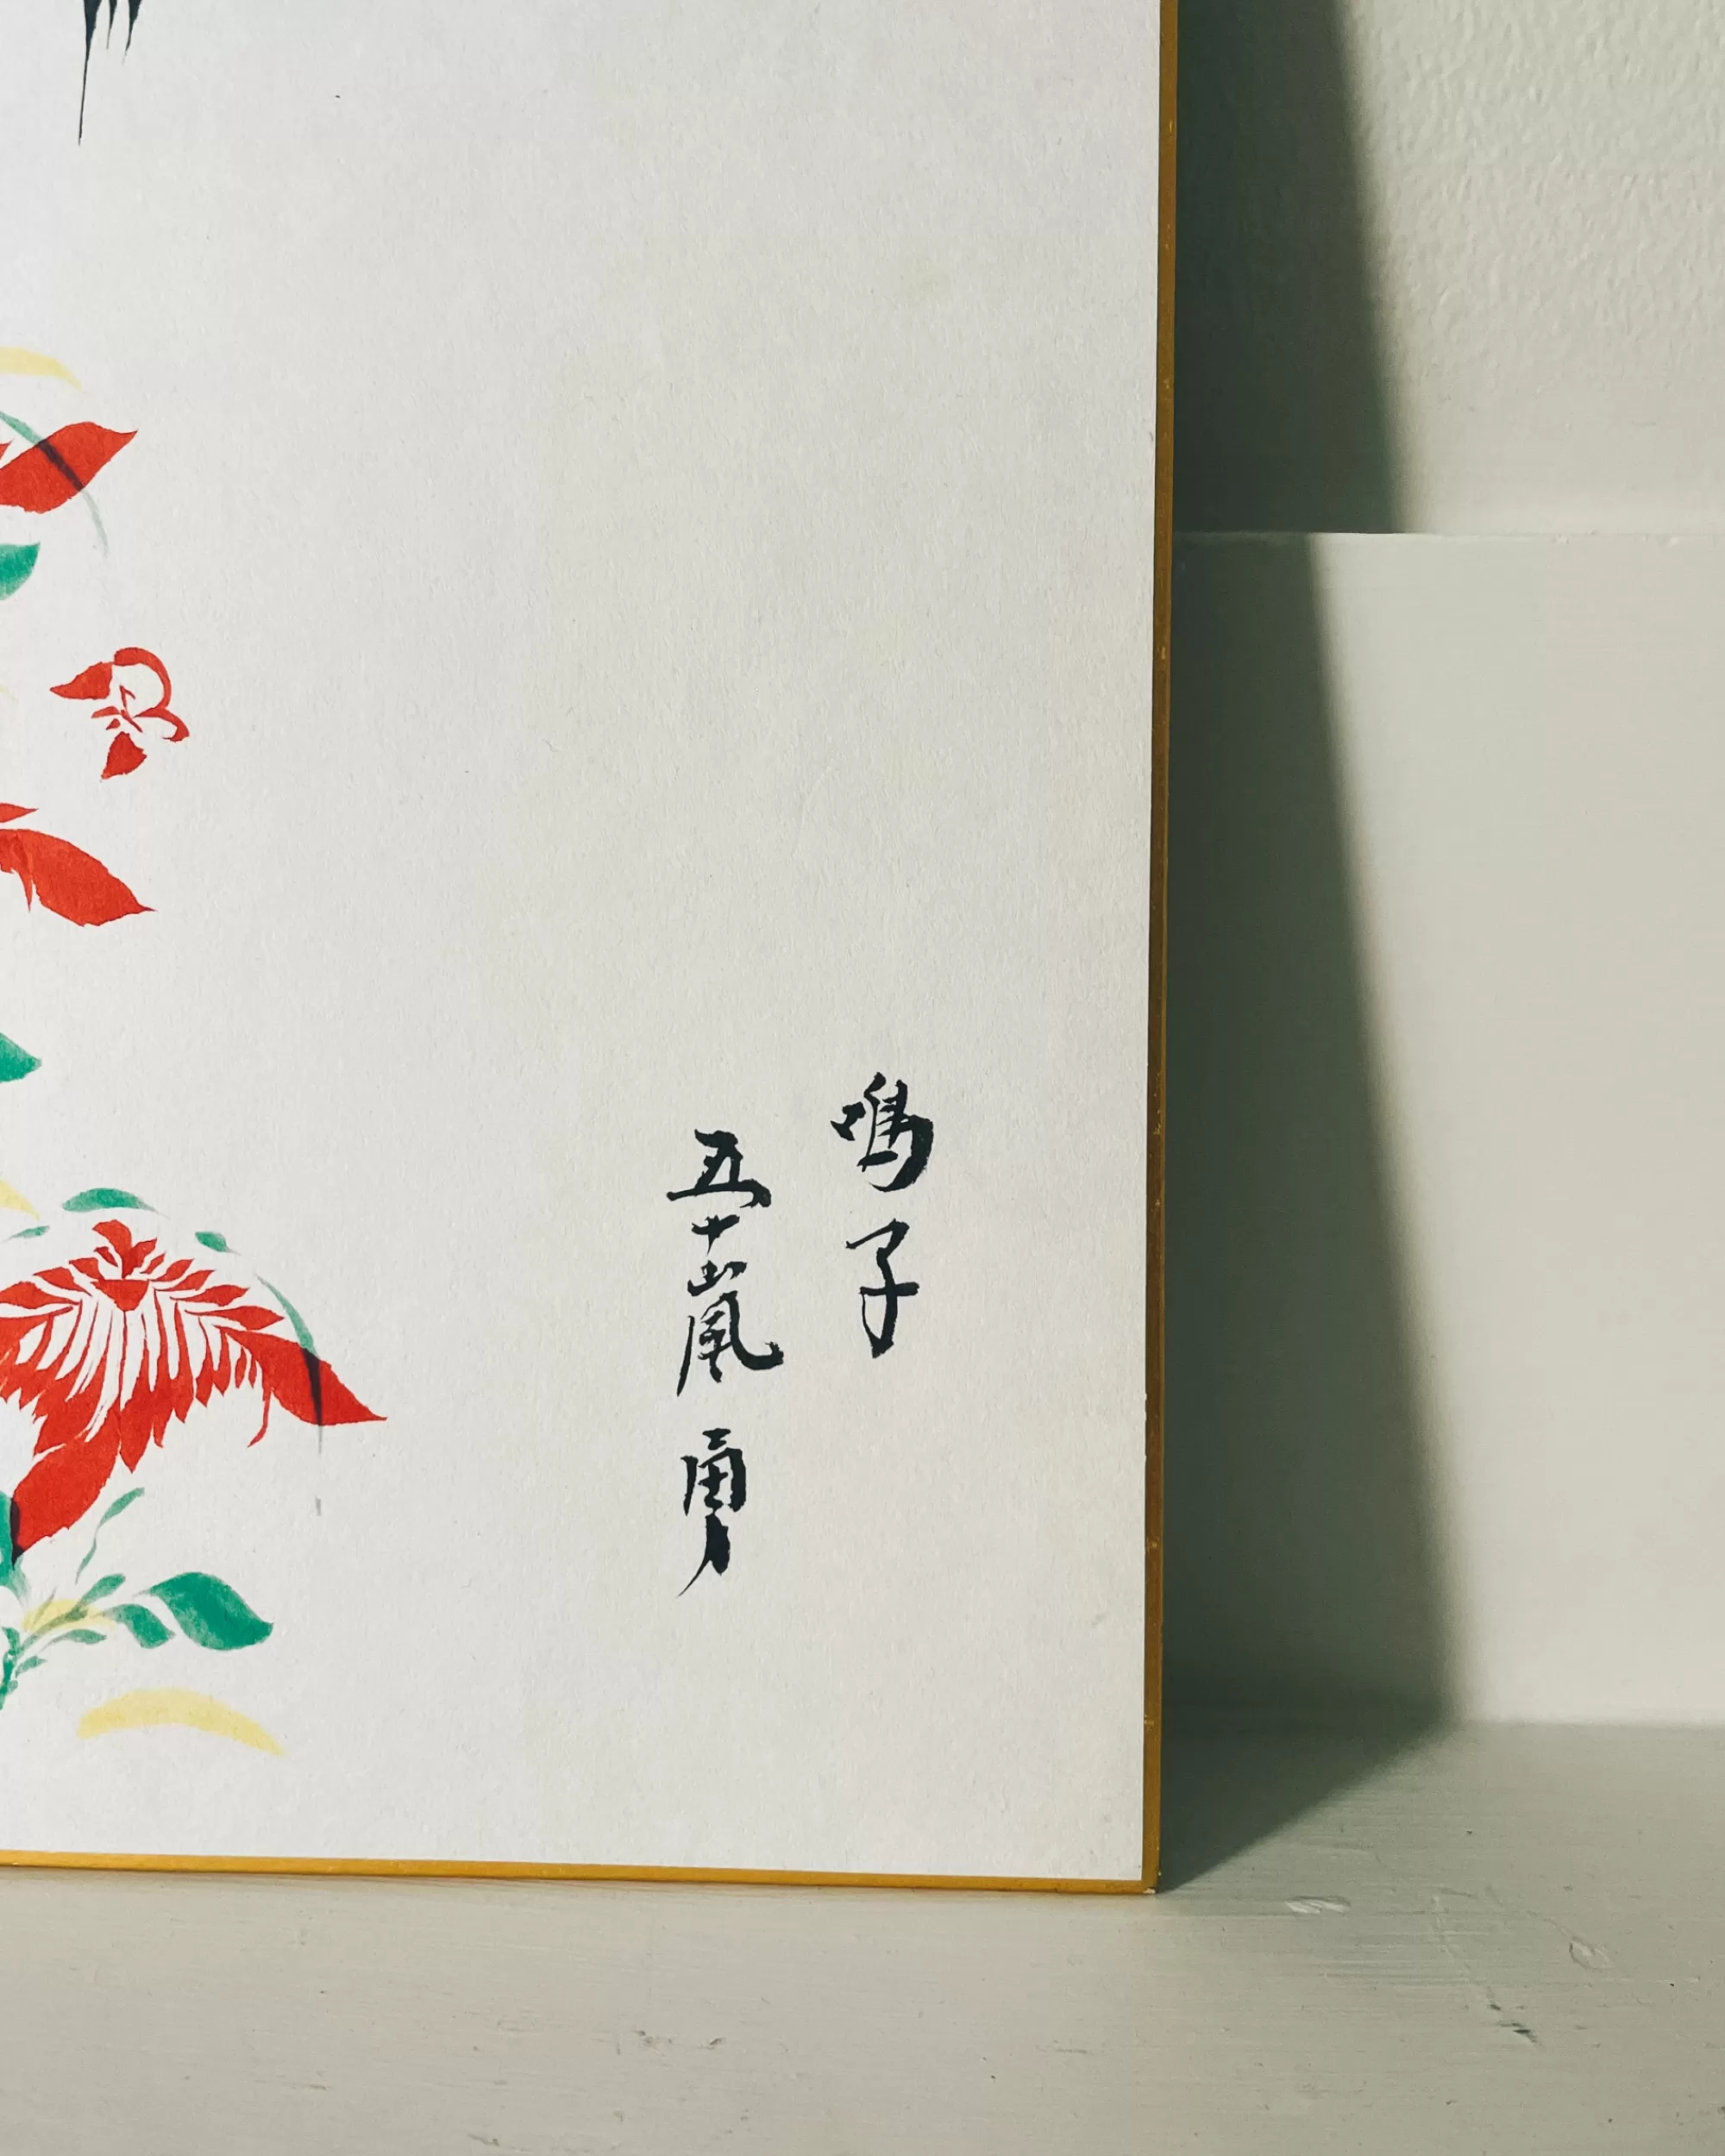 鳴子
五十嵐勇